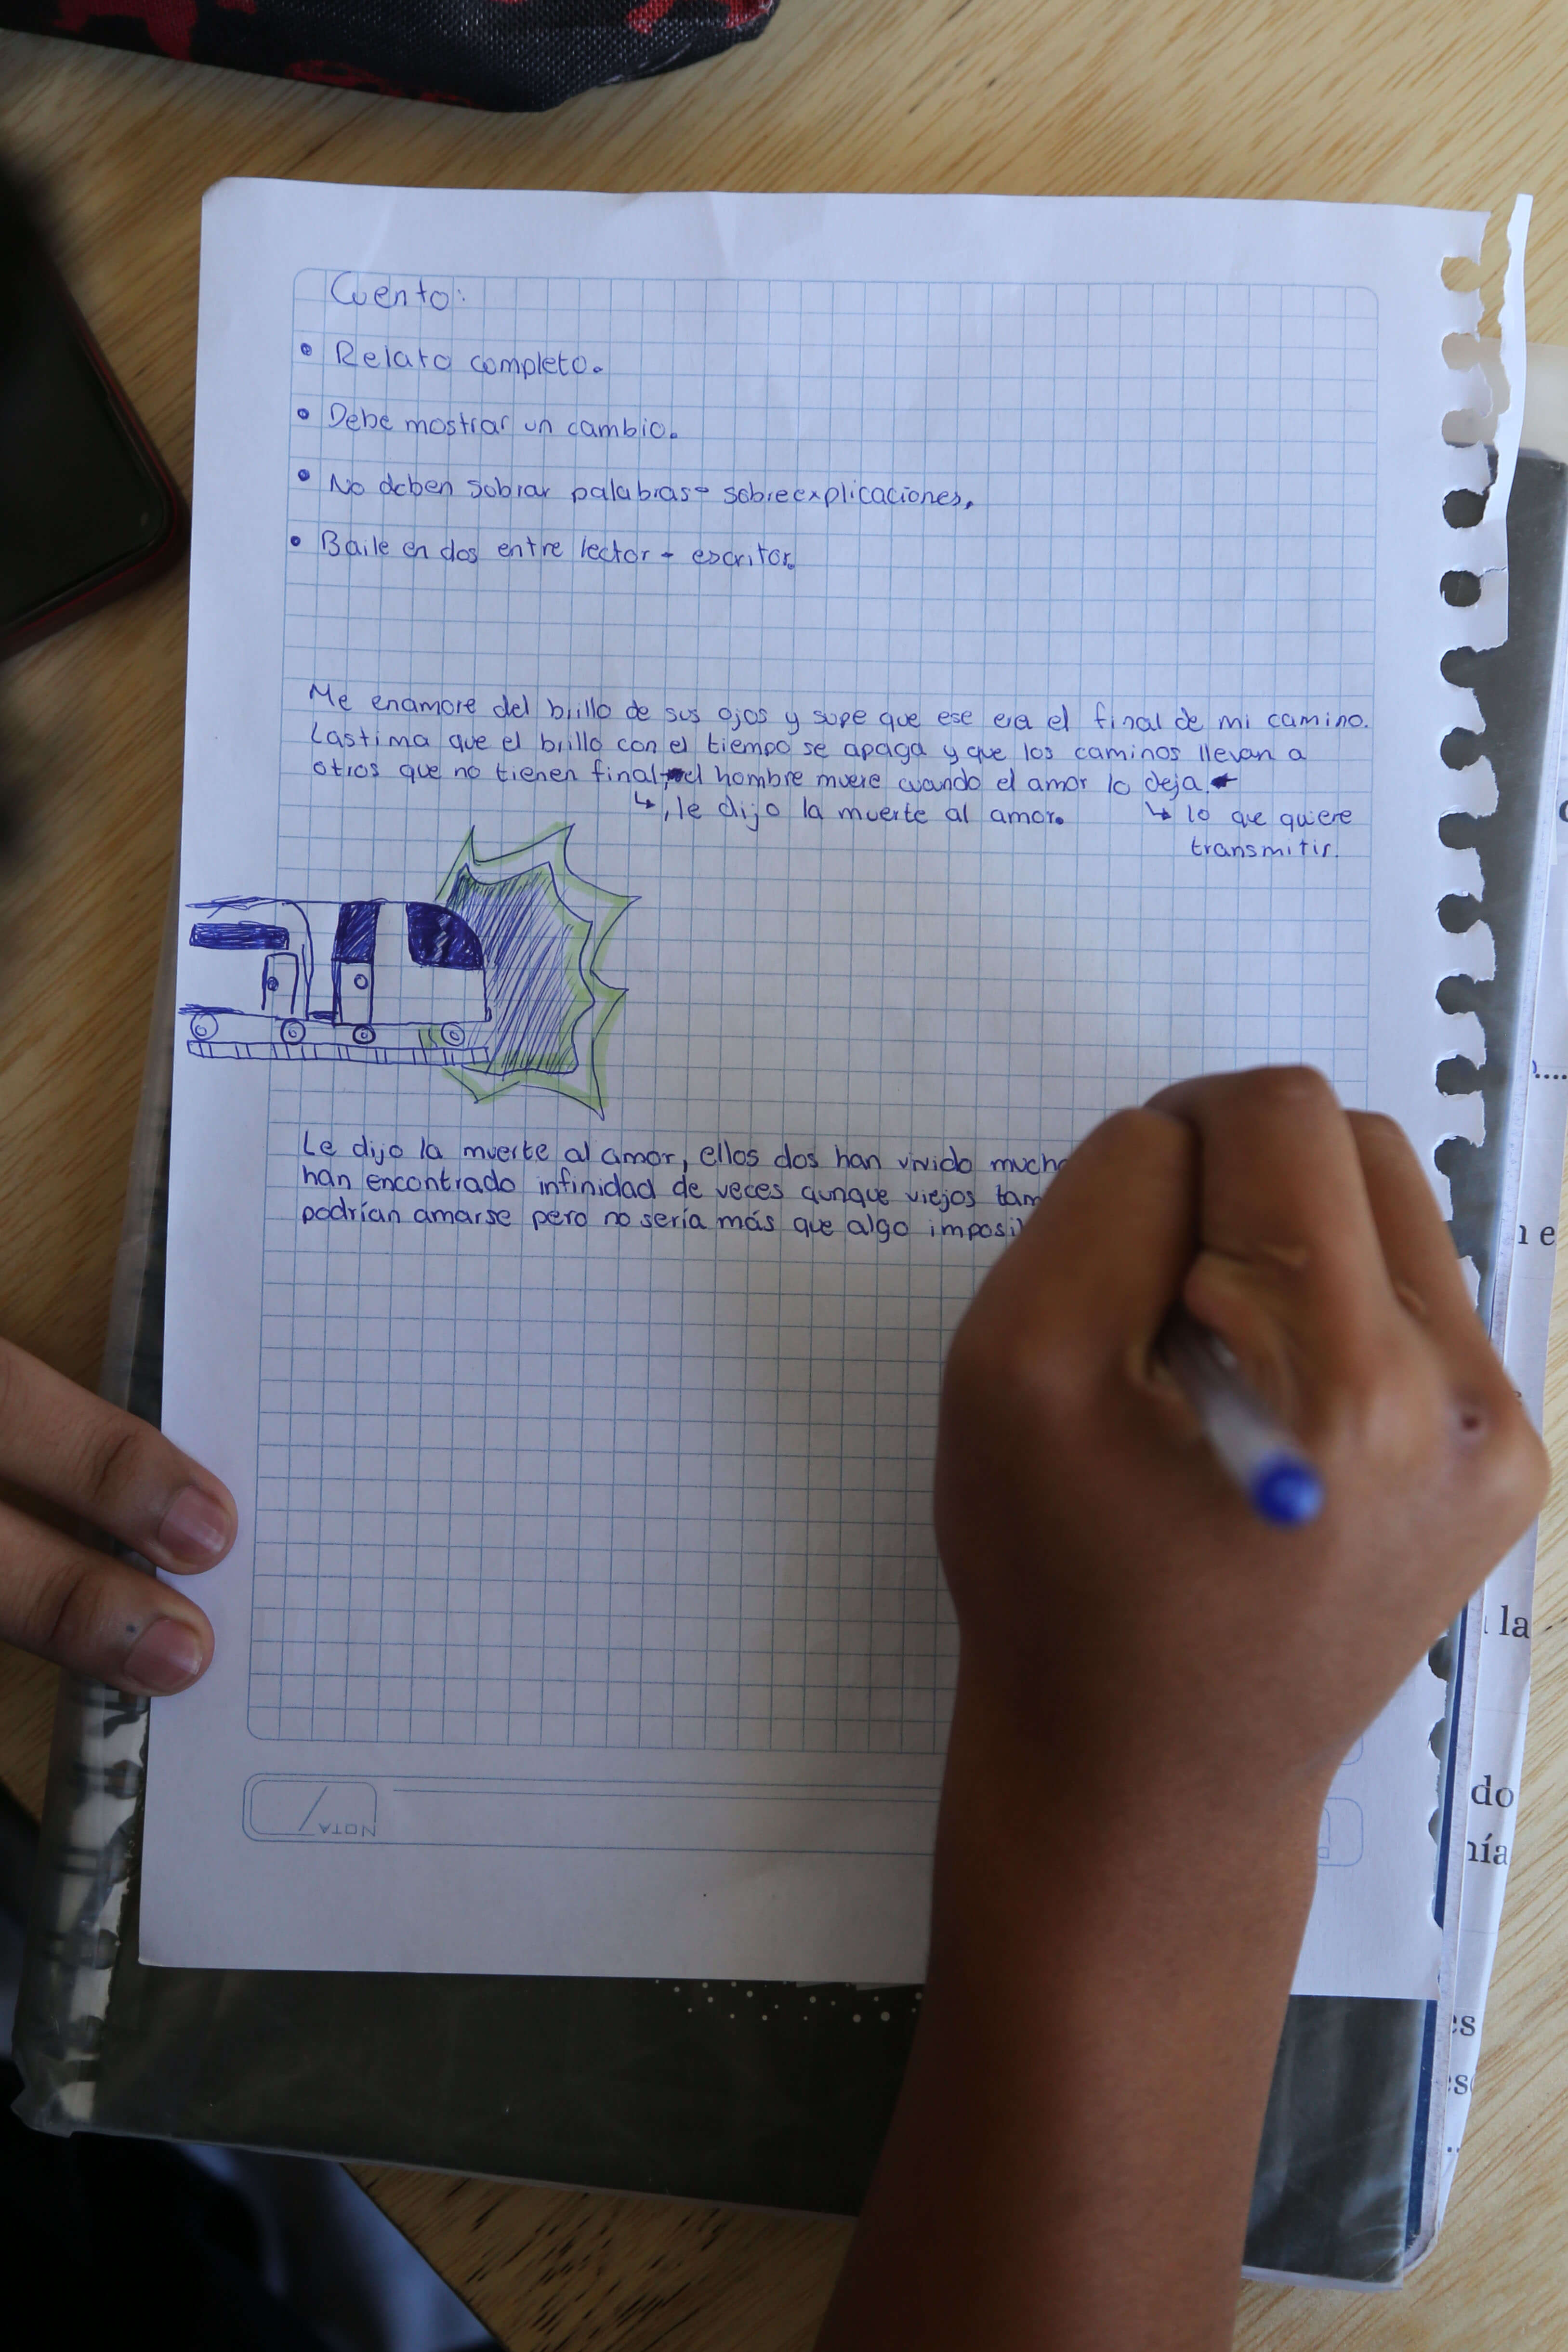 Cuento:
• Relato completo.
• Debe mostrar un cambio.
• No deben sobrar palabras- sobreexplicaciones.
• Baile en dos entre lector - escritor.
Me enamore del brillo de sus ojos y supe que ese era el final de mi camino.
Lastima que el brillo con el tiempo se apaga y que los caminos llevan a
otros que no tienen final, el hombre muere cuando el amor lo deja.
↳, le dijo la muerte al amor. ↳ lo que quiere
transmitir.
Le dijo la muerte al amor, ellos dos han vivido
han encontrado infinidad de veces aunque viejos
podrían amarse pero no sería más que algo
NOTA
la
do